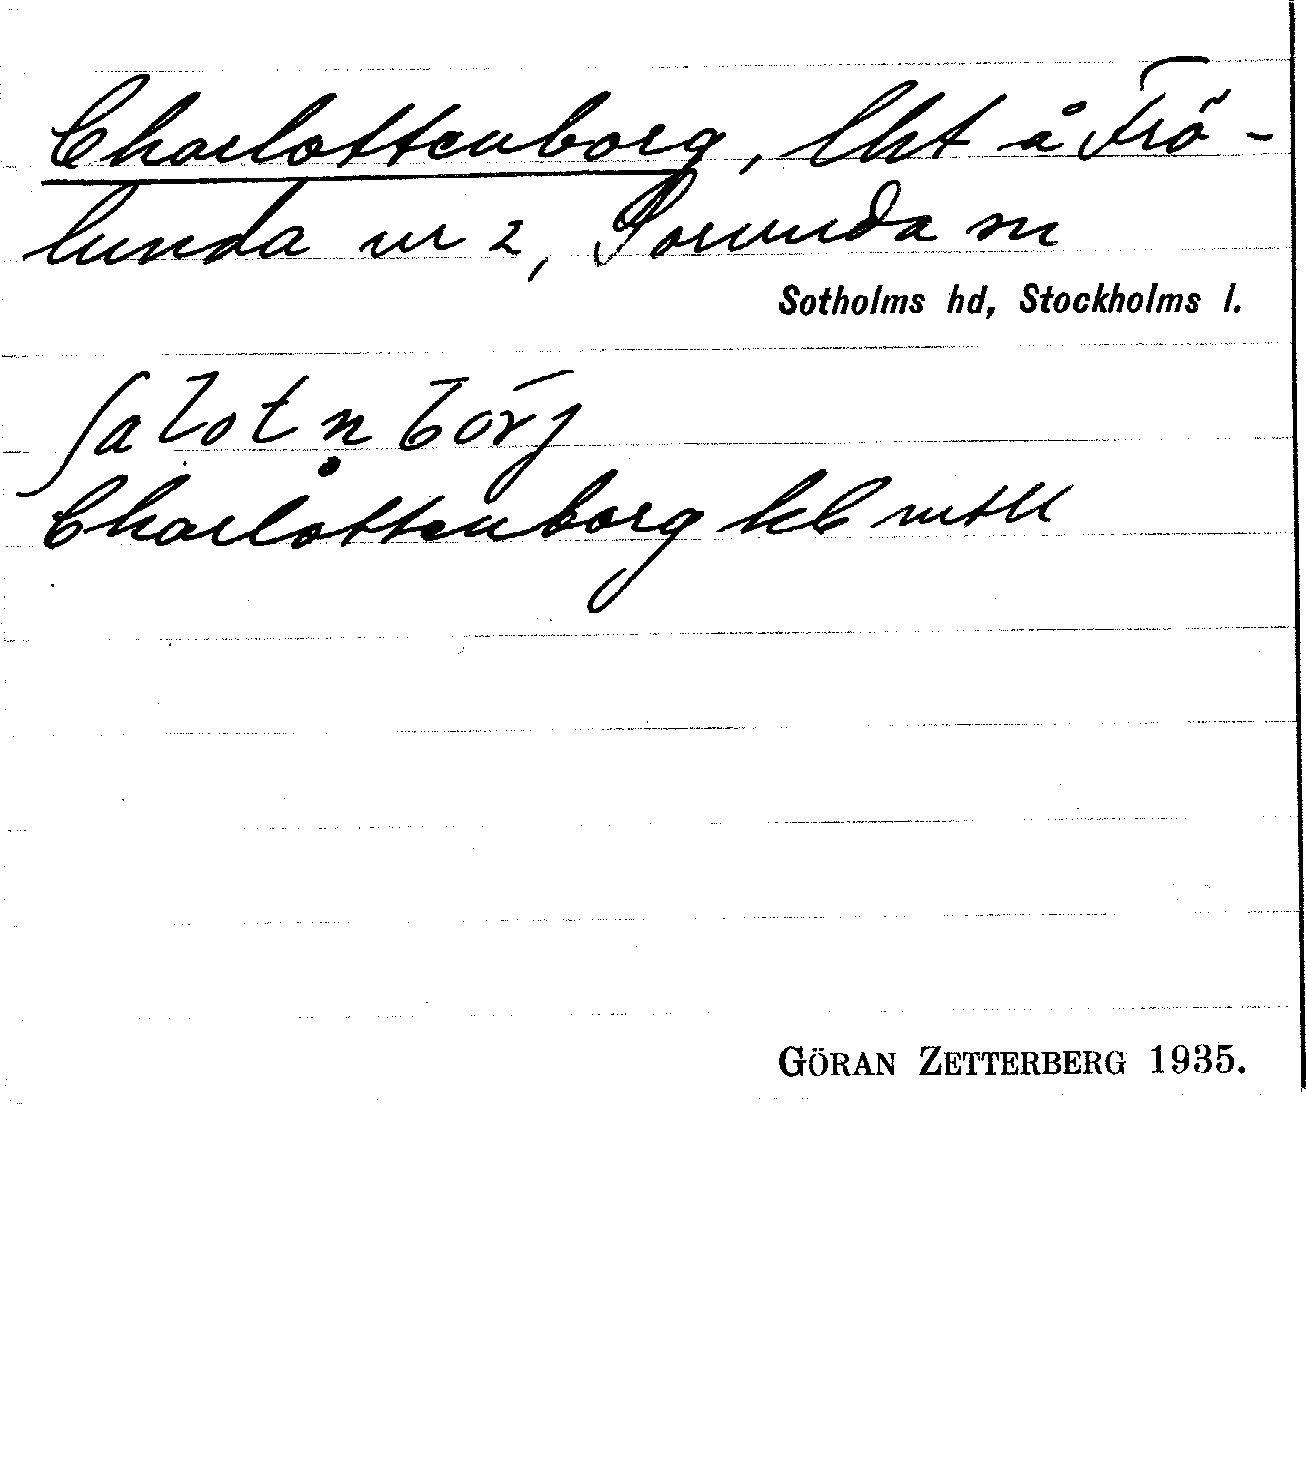 Charlottenborg, lht å Frö-
lunda nr 2, Sorunda sn
Sotholms hd, Stockholms l.
ʃalotn̥bórj
Charlottenborg
GÖRAN ZETTERBERG 1935.